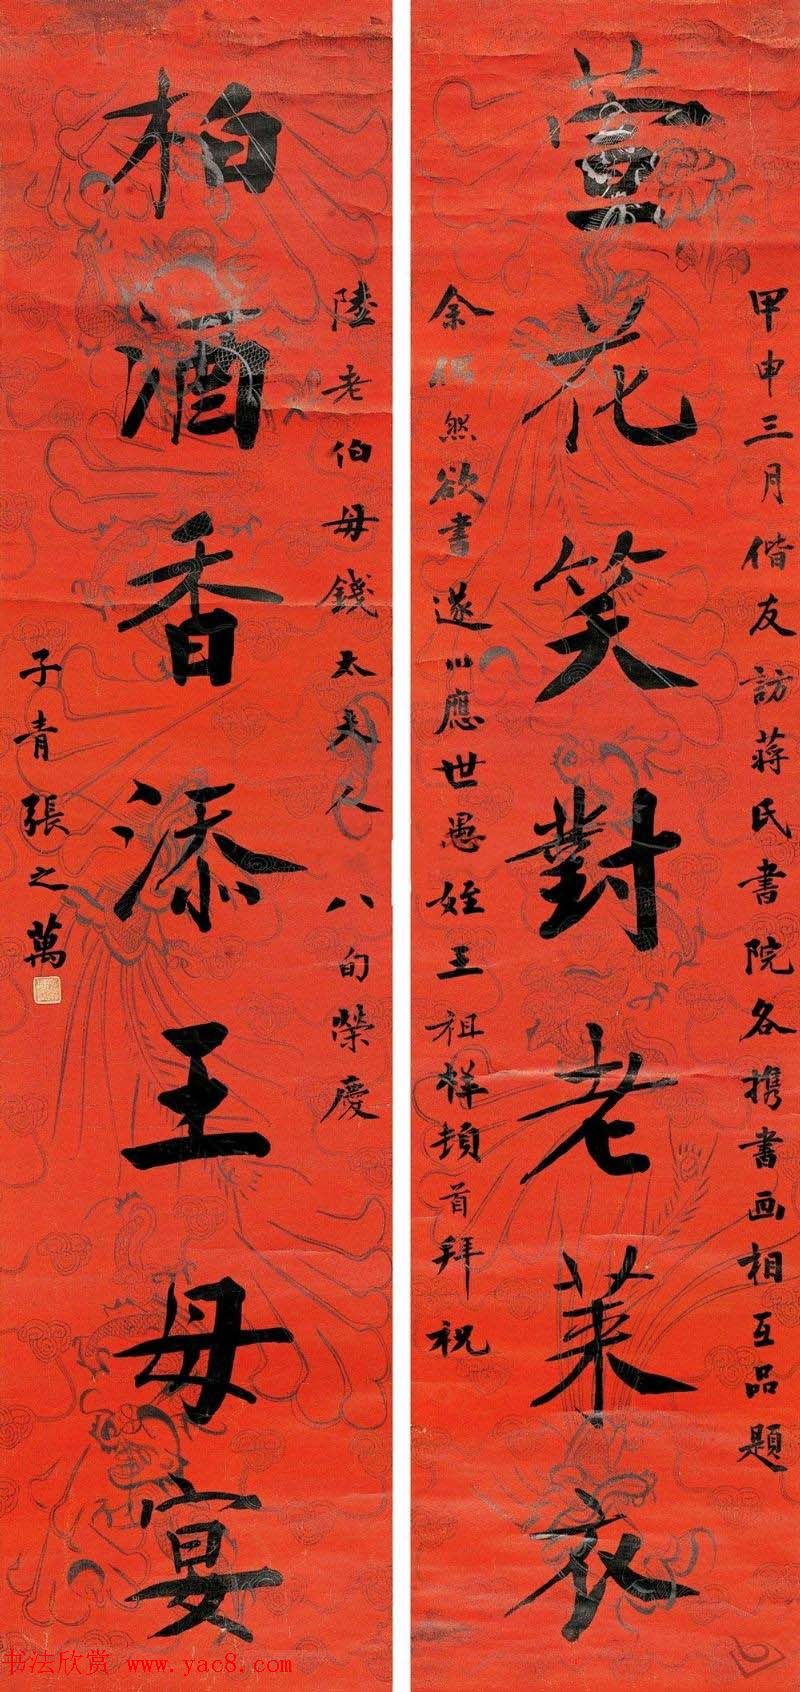 甲申三月偕友訪蔣氏書院各携書画相互品題
萱花笑對老萊衣
余偶然欲書遂以應世愚姪王祖祥頓首拜祝
陸老伯母錢太夫人 八旬榮慶
柏酒香添王母宴
子青張之萬
书法欣赏 www.yac8.com